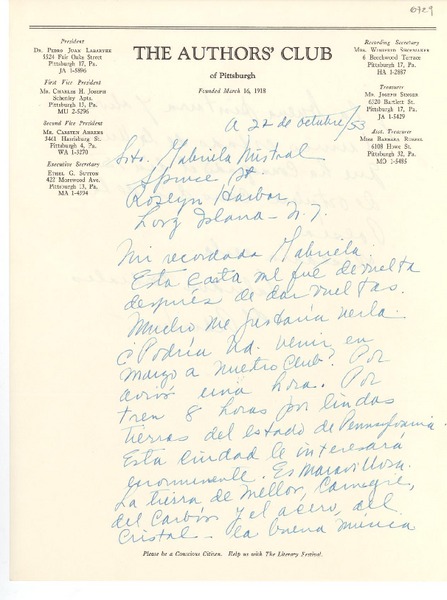 0729
President
Dr. Pedro Juan Labarthe
5524 Fair Oaks Street
Pittsburgh 17, Pa.
JA 1-5896
First Vice President
Mr. Charlie H. Joseph
Schenley Apts.
Pittsburgh 13, Pa.
MU 2-5296
Second Vice President
Mr. Carsten Ahrens
3461 Harrisburg St.
Pittsburgh 4, Pa.
WA 1-3270
Executive Secretary
Ethel G. Sutton
422 Morewood Ave.
Pittsburgh 13, Pa.
MA 1-4594
THE AUTHORS' CLUB
of Pittsburgh
Founded March 16, 1918
Recording Secretary
Mrs. Winifred
6 Beechwood Terrace
Pittsburgh 17, Pa.
HA 1-2887
Treasurer
Mr. Joseph Singer
6320 Bartlett St.
Pittsburgh 17, Pa.
JA 1-5429
Asst. Treasurer
Miss Barbara Russel
6108 Howe St.
Pittsburgh 32, Pa.
MO 1-5485
A 22 de octubre/53
Srta. Gabriela Mistral
Spruce St.
Roslyn Harbor
Long Island - N.Y.
Mi recordada Gabriela:
Esta carta me fué devuelta
después de dar vueltas.
Mucho me gustaría verla.
¿Podría Ud. venir en
marzo a nuestro Club? Por
avión una hora. Por
tren 8 horas por lindas
tierras del estado de Pennsylvania.
Esta ciudad le interesará
enormemente. Es maravillosa.
La tierra de Mellon, Carnegie,
del Carbón y el acero, del
Cristal - la buena música
Please be a Conscious Citizen. Help us with The Literary Festival.